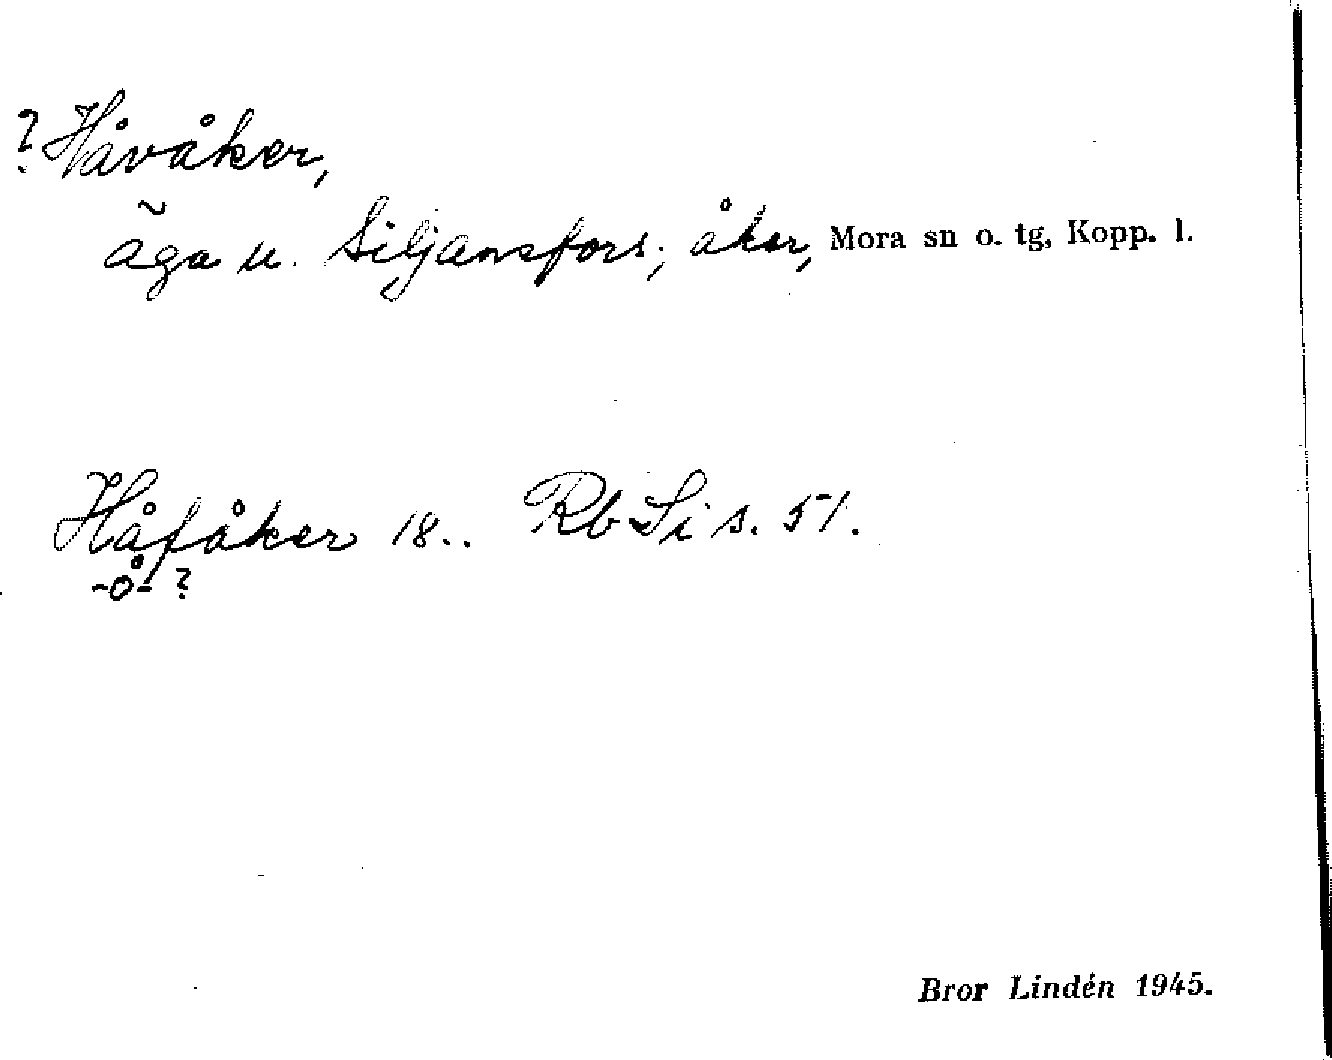 ? Håvåker,
äga u. Siljansfors; åker, Mora sn o. tg, Kopp. l.
Håfåker 18.. Rb Si s. 51.
-å- ?
Bror Lindén 1945.